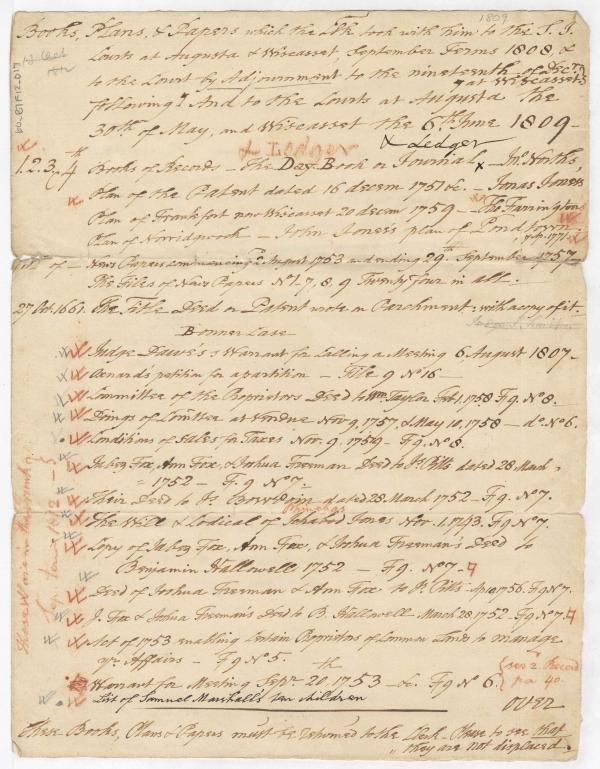 1809
Books, Plans, & Papers which the Clk took with him to the S. J.
Courts at Augusta & Wiscasset, September Terms 1808 &
to the Court by Adjournment to the nineteenth of Decr. at Wiscasset
following. And to the Courts at Augusta the
30th of May, and Wiscasset the 6th June 1809 -
x Ledger
1. 2. 3. & 4th Books of Records - The Day-Book or Journal x - Jno. North's,
Plan of the Patent dated 16 decem 1751 &c. - Jonas Jones's
Plan of Frankfort now Wiscasset 20 decem 1759 - Tho Farrington's
Plan of Norridgwock - John Jones's plan of Pondtown, 1771
News Papers commencing 2. August 1753 and ending 29th September 1757 -
The Files of News Papers No. 1. 7, 8. 9 Twenty four in all.
27 Oct. 1661. The Title Deed or Patent wrote on Parchment: with a copy of it.
Bonner Case
Judge Dawes's Warrant for Calling a Meeting 6 August 1807 -
petition for a partition - File 9 No 16 -
Committee of the Proprietors Deed to Wm. Taylor Feb. 1. 1758 F. 9. No 8.
Doings of Comttee at Vendue Nov 9, 1757, & May 10, 1758 - do. No 6.
Conditions of Sales for Taxes Nov. 9. 1759 - F. 9 No 8.
Jabez Fox, Ann Fox, & Joshua Freeman Deed to Js. Pitts dated 28. March
= 1752 - F. 9 No 7.
Their Deed to Js Bowdoin dated 28. March 1752 - F. 9 No 7.
The Will & Codical of Jahabod Jones Nov. 1. 1743. F. 9 No 7.
Copy of Jabez Fox, Ann Fox, & Joshua Freeman's Deed to
Benjamin Hallowell 1752 - F. 9. No 7 -
Deed of Joshua Freeman & Ann Fox to J. Pitts - Ap. 10 1756. F. 9 No 7.
J. Fox & Joshua Freeman's Deed to B. Hallowell March 28. 1752 - F. 9 No 7
Act of 1753 enabling Certain Proprietors of Common Lands to manage
yr. Affairs - F 9 No 5.
Warrant for Meeting Sepr. 20th 1753 - &c. F 9 No 6.
see 2. Record
pa 40.
List of Samuel Marshall's ten children
over
These Books, Plans & Papers must be returned to the Clerk - Please to see that
they are not displaced.